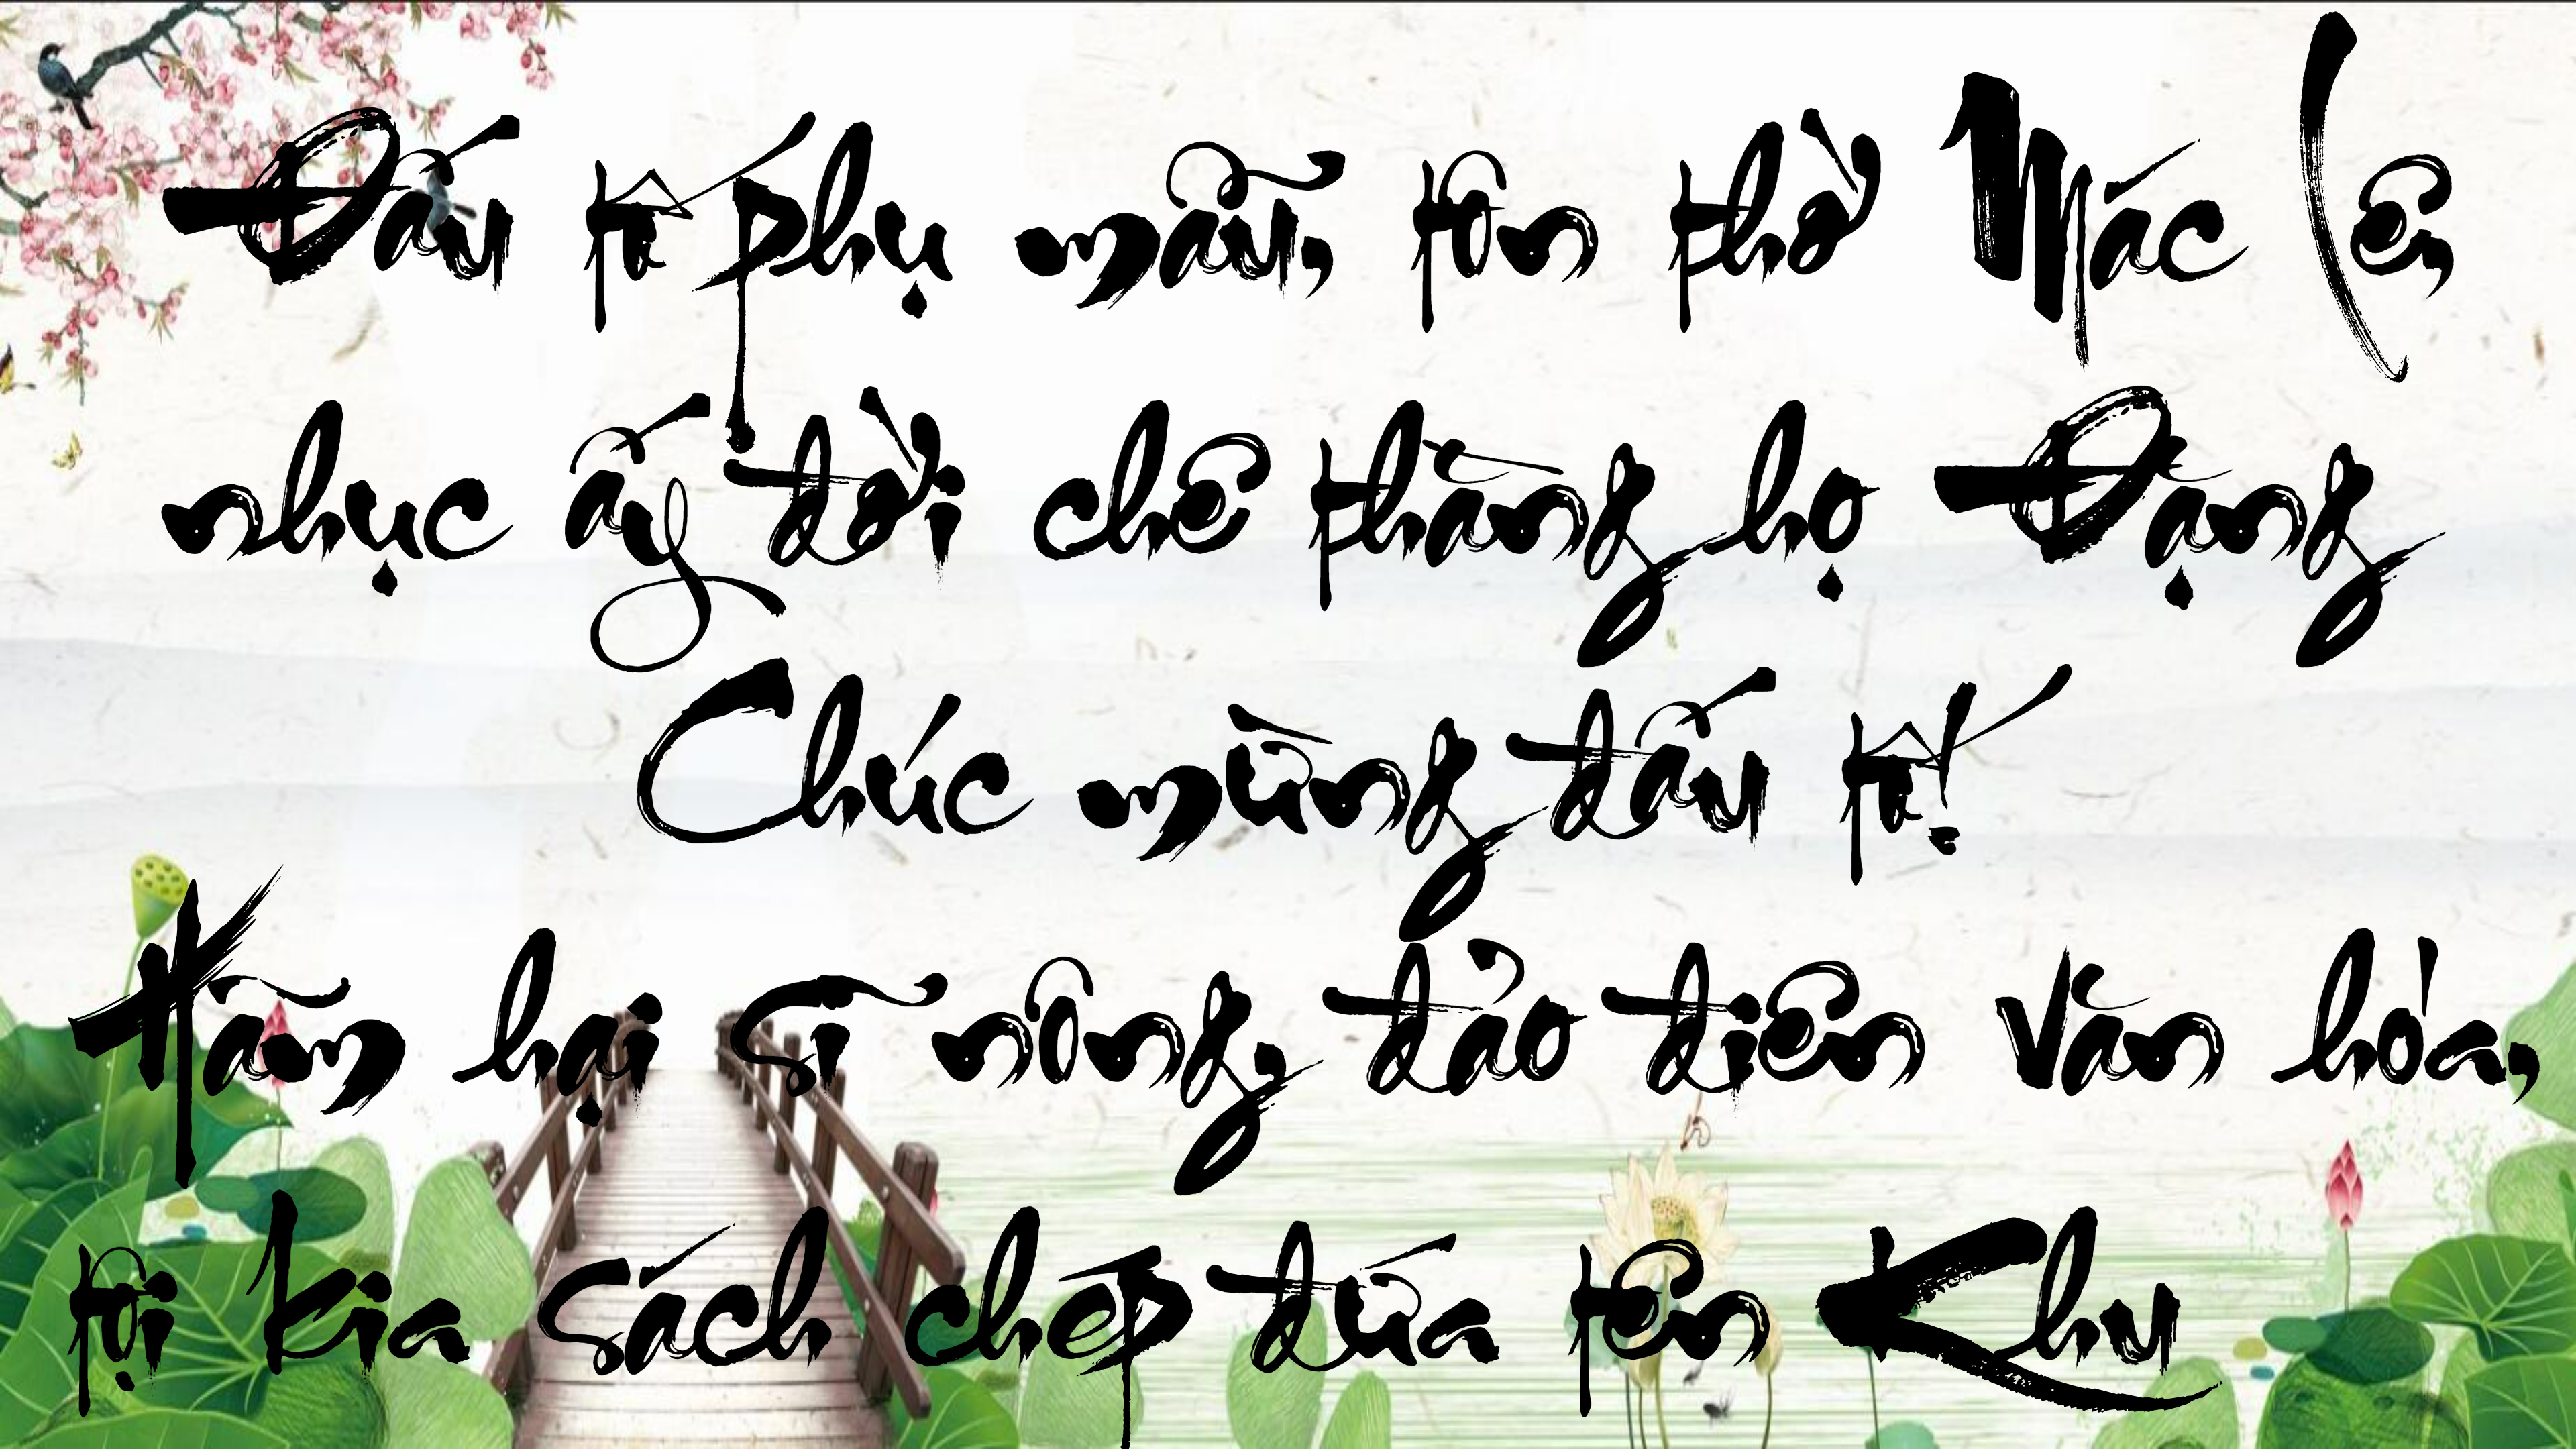 Đấu tố phụ mẫu, tôn thờ Mác Lê,
nhục ấy đời chê thằng họ Đặng
Chúc mừng đấu tố!
Hãm hại sĩ nông, đảo điên văn hóa,
tội kia sách chép đứa tên Khu